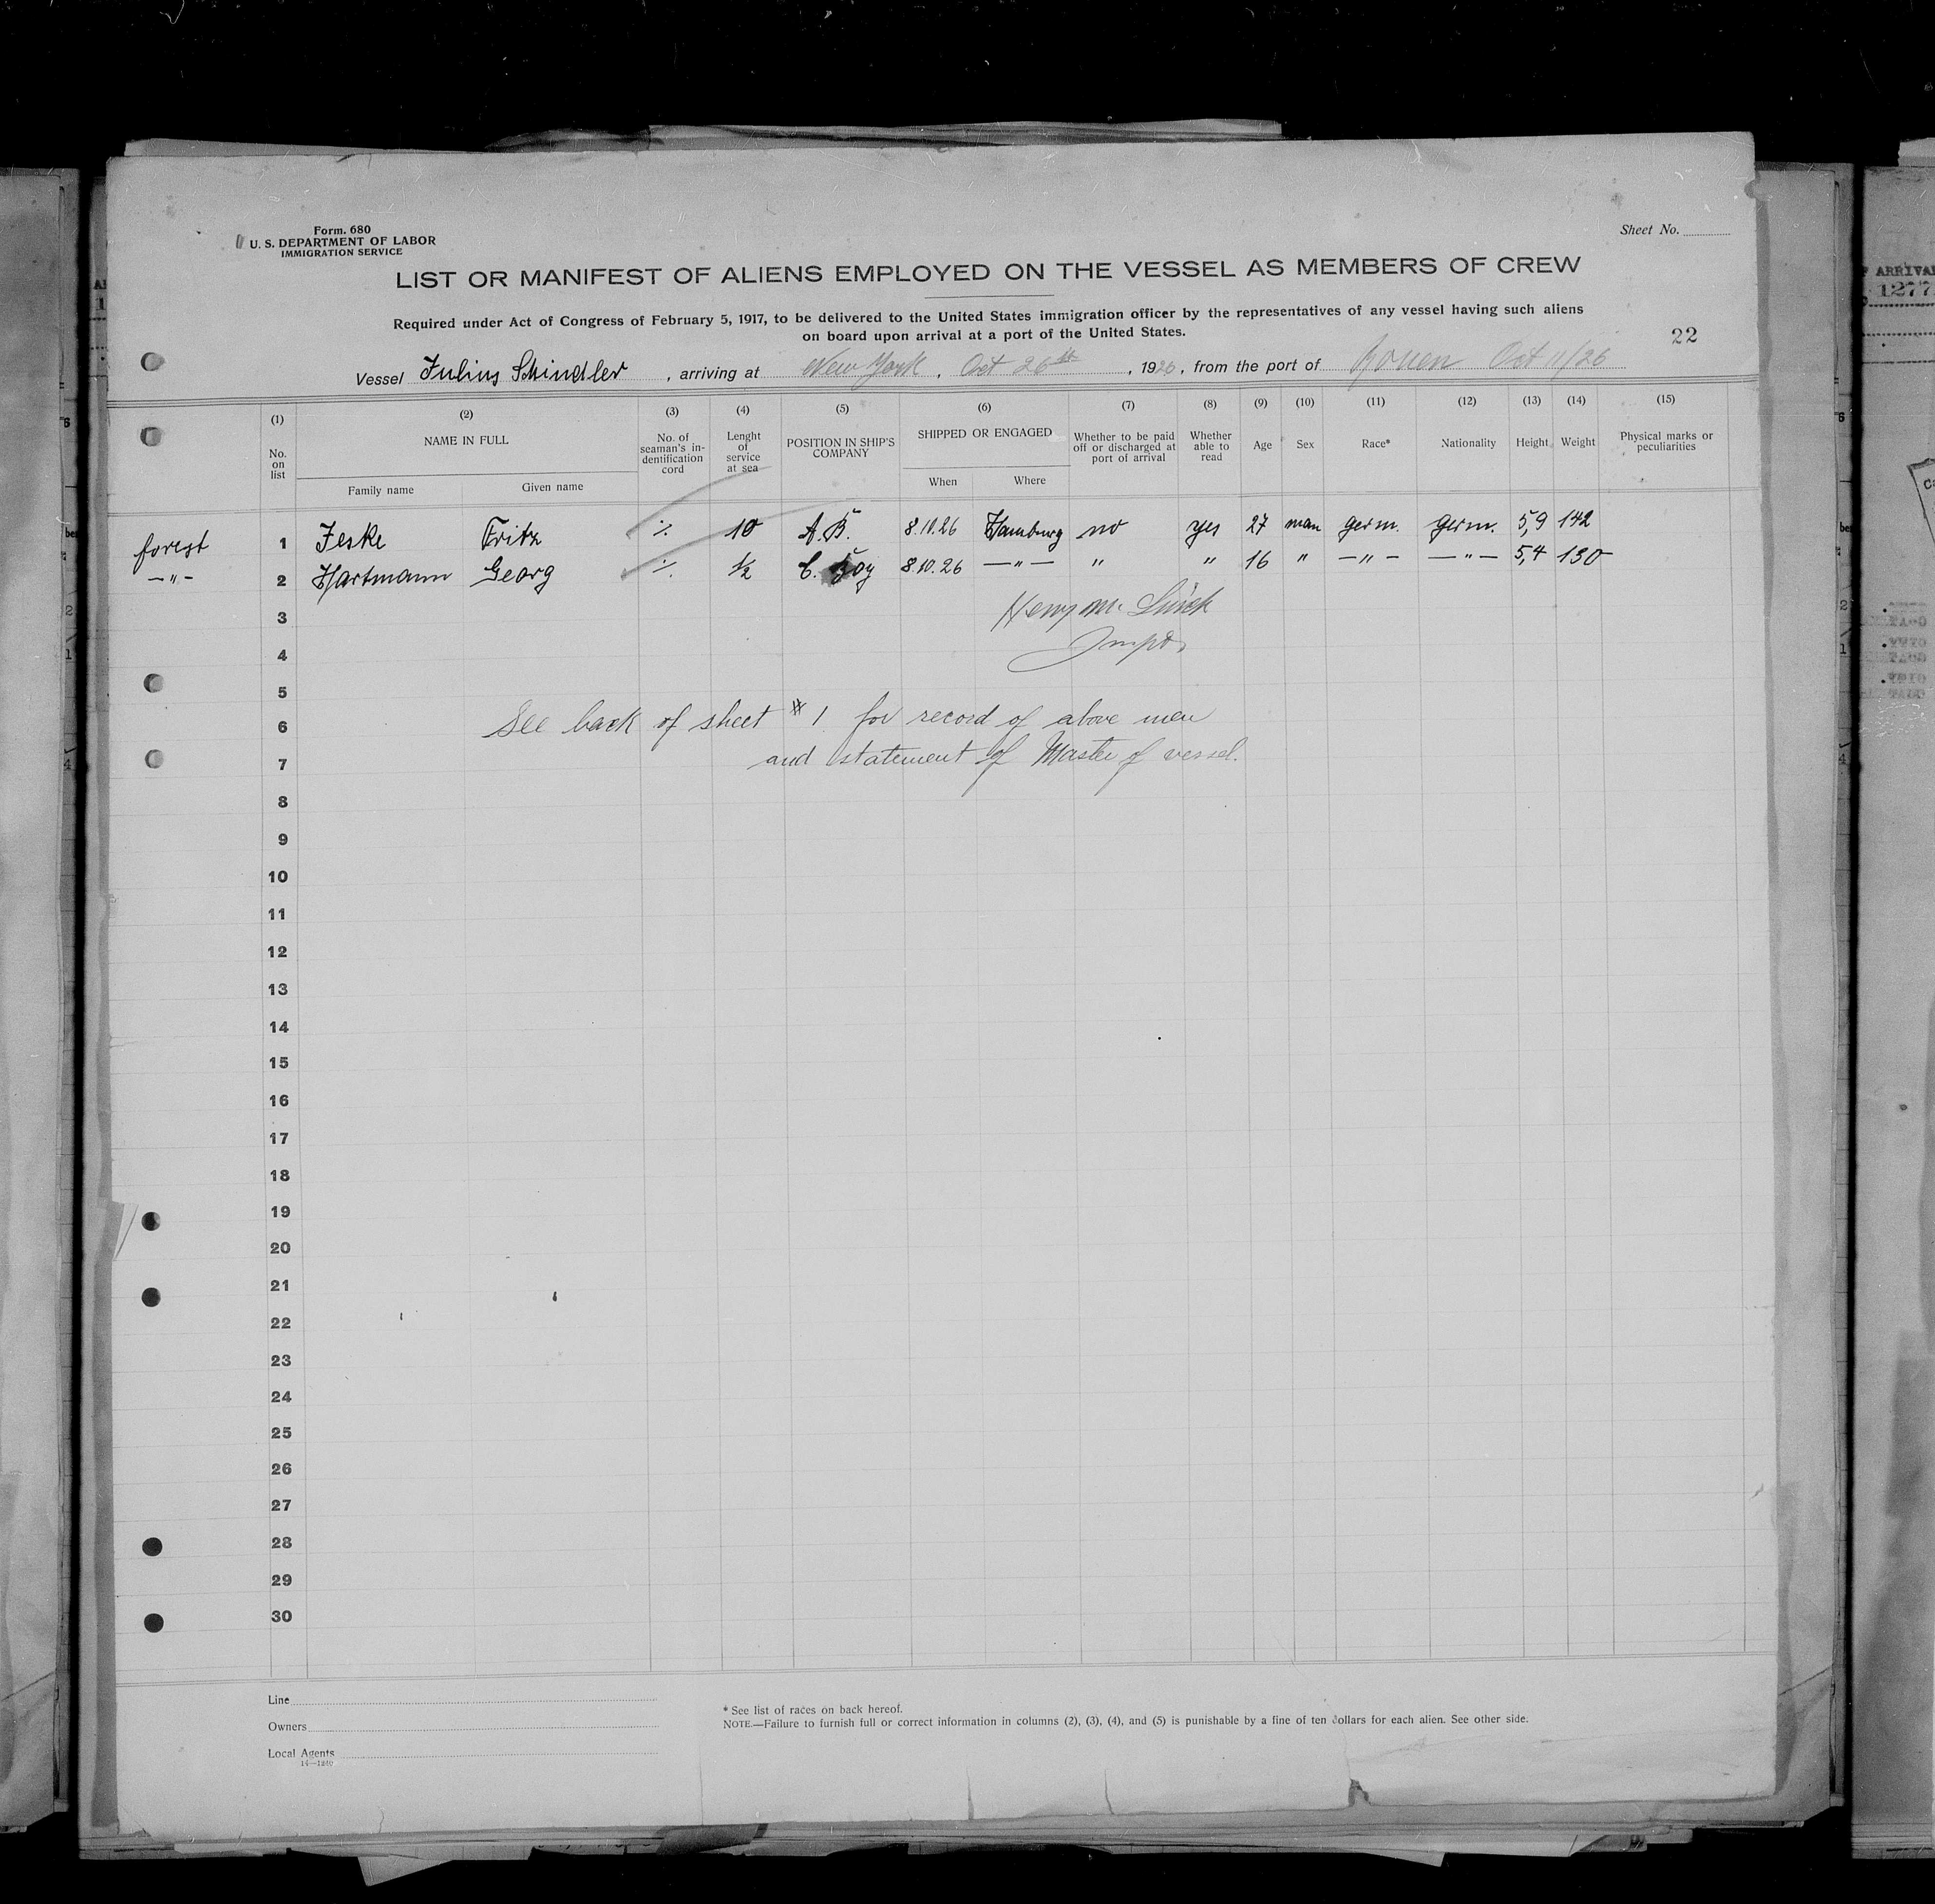 Form. 680
U. S. DEPARTMENT OF LABOR
IMMIGRATION SERVICE
Sheet No.
LIST OR MANIFEST OF ALIENS EMPLOYED ON THE VESSEL AS MEMBERS OF CREW
Required under Act of Congress of February 5, 1917, to be delivered to the United States immigration officer by the representatives of any vessel having such aliens
on board upon arrival at a port of the United States.
22
Vessel Julius Schindler, arriving at New York, Oct 26th, 1926, from the port of Rouen Oct 11/26
(1) (2) (3) (4) (5) (6) (7) (8) (9) (10) (11) (12) (13) (14) (15)
No. on list NAME IN FULL No. of seaman's in-dentification cord Lenght of service at sea POSITION IN SHIP'S COMPANY SHIPPED OR ENGAGED Whether to be paid off or discharged at port of arrival Whether able to read Age Sex Race* Nationality Height Weight Physical marks or peculiarities
Family name Given name When Where
forest 1 Jeske Fritz ·/. 10 A.B. 8.10.26 Hamburg no yes 27 man germ. germ. 5,9 142
—"— 2 Hartmann Georg ·/. 1/2 C. Boy 8.10.26 —"— " " 16 " —"— —"— 5,4 130
3 Henry M.
4
5
6 See back of sheet # 1 for record of above men
7 and statement of Master of vessel.
8
9
10
11
12
13
14
15
16
17
18
19
20
21
22
23
24
25
26
27
28
29
30
Line
Owners
Local Agents
14—1240
* See list of races on back hereof.
NOTE.—Failure to furnish full or correct information in columns (2), (3), (4), and (5) is punishable by a fine of ten dollars for each alien. See other side.
ARRIVA
1277